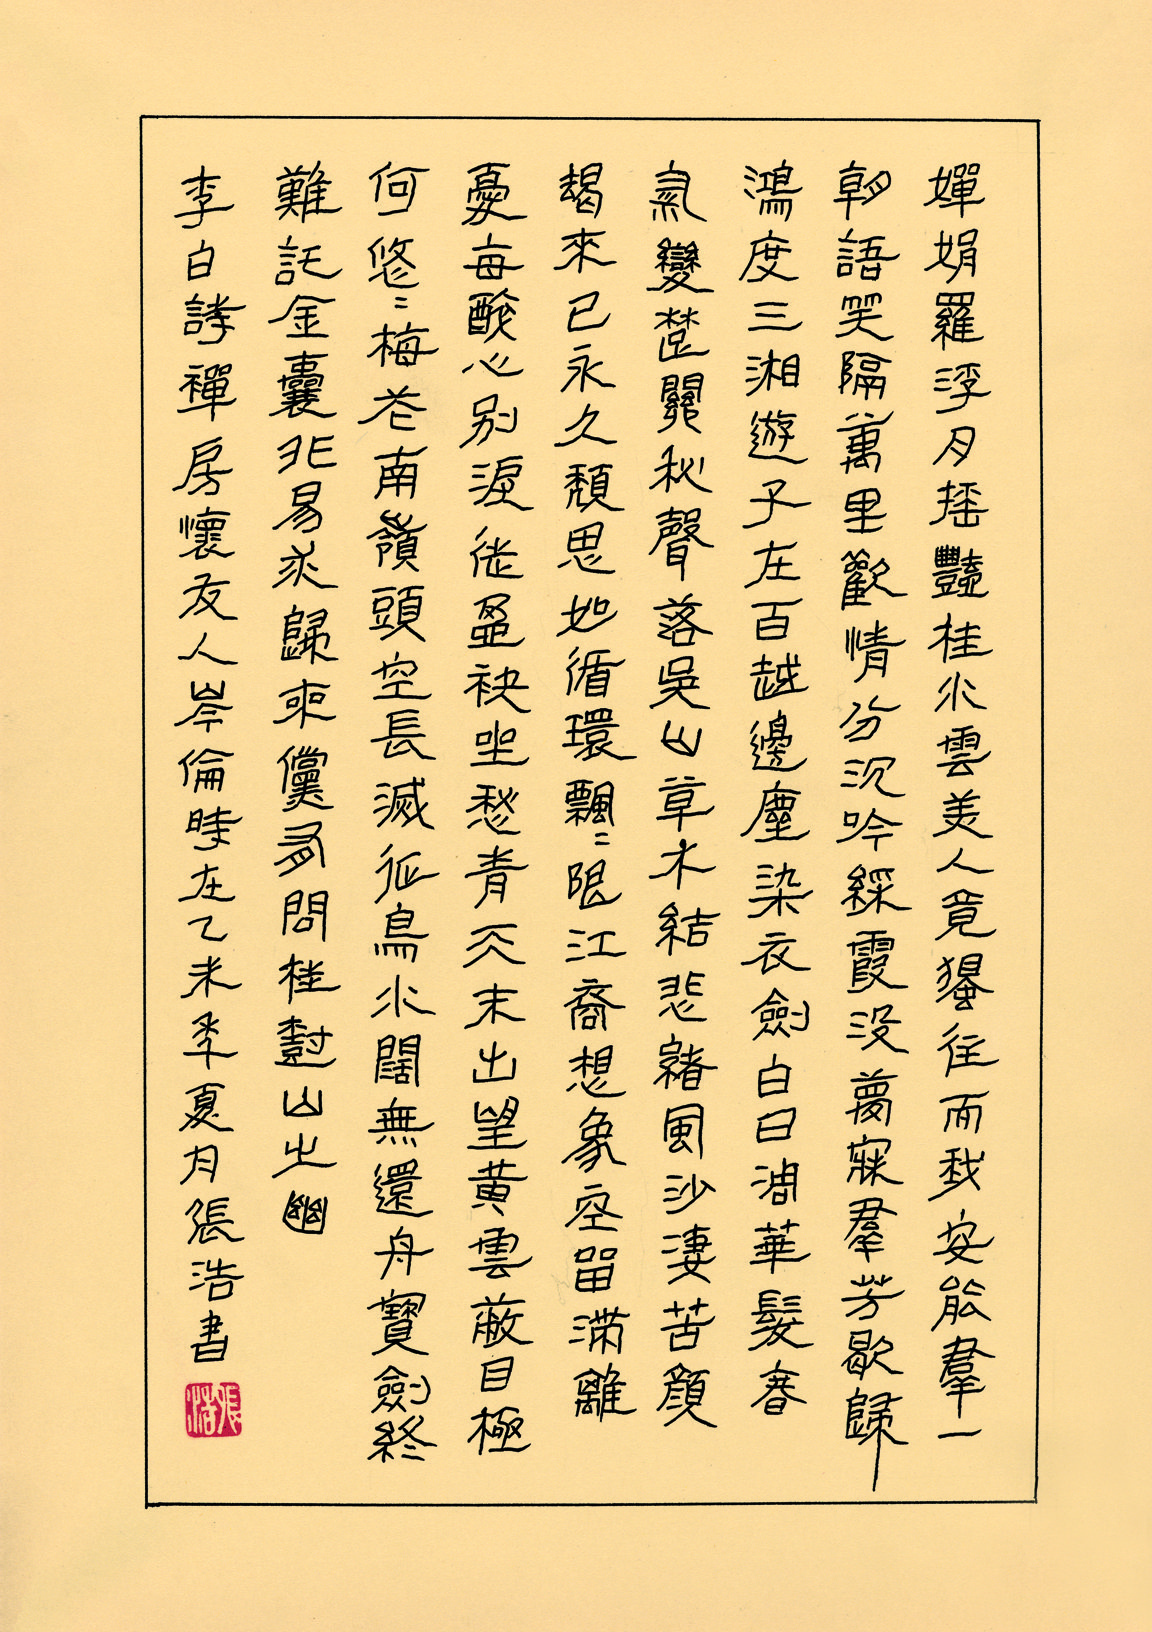 嬋娟羅浮月搖豔桂水雲美人竟獨往而我安能羣一
朝語笑隔萬里歡情分沉吟綵霞没夢寐羣芳歇歸
鴻度三湘遊子在百越邊塵染衣劍白日凋華髮春
氣變楚關秋聲落吳山草木結悲緒風沙淒苦顏
朅來已永久頹思如循環飄〻限江裔想象空留滯離
憂每酸心別淚徒盈袂坐愁青天末出望黄雲蔽目極
何悠〻梅花南嶺頭空長滅征鳥水闊無還舟寶劍終
難託金囊非易求歸來儻有問桂樹山之幽
李白詩禪房懷友人岑倫時在乙未季夏月張浩書
張浩